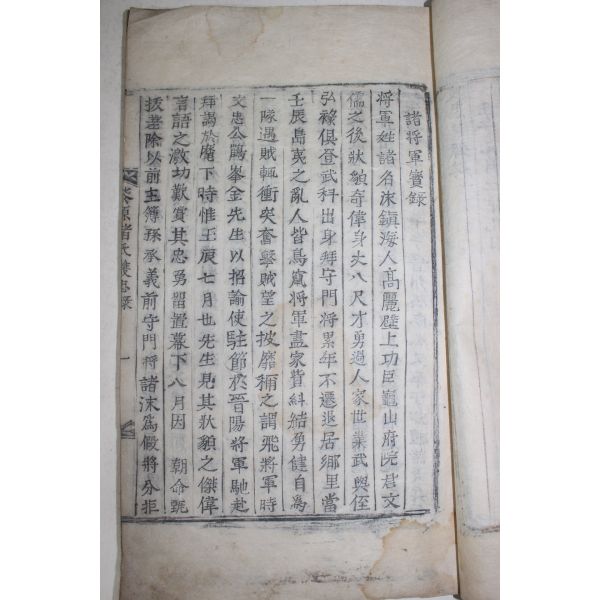 諸將軍實錄
將軍姓諸名沫鎭海人高麗壁上功臣龜山府院君文
儒之後狀貌奇偉身丈八尺才勇過人家世業武與侄
弘祿俱登武科出身拜守門將累年不遷退居鄉里當
壬辰島夷之亂人皆鳥竄將軍盡家貲糾結勇健自爲
一隊遇賊輒衝突奮擊賊望之披靡稱之謂飛將軍時
文忠公鶴峯金先生以招諭使駐節於晉陽將軍馳赴
拜謁於麾下時惟壬辰七月也先生見其狀貌之傑偉
言語之激切歎賞其忠勇留置幕下八月因 朝命甄
拔差除以前主簿孫承義前守門將諸沫爲假將分拒
漆原諸氏雙忠錄 一